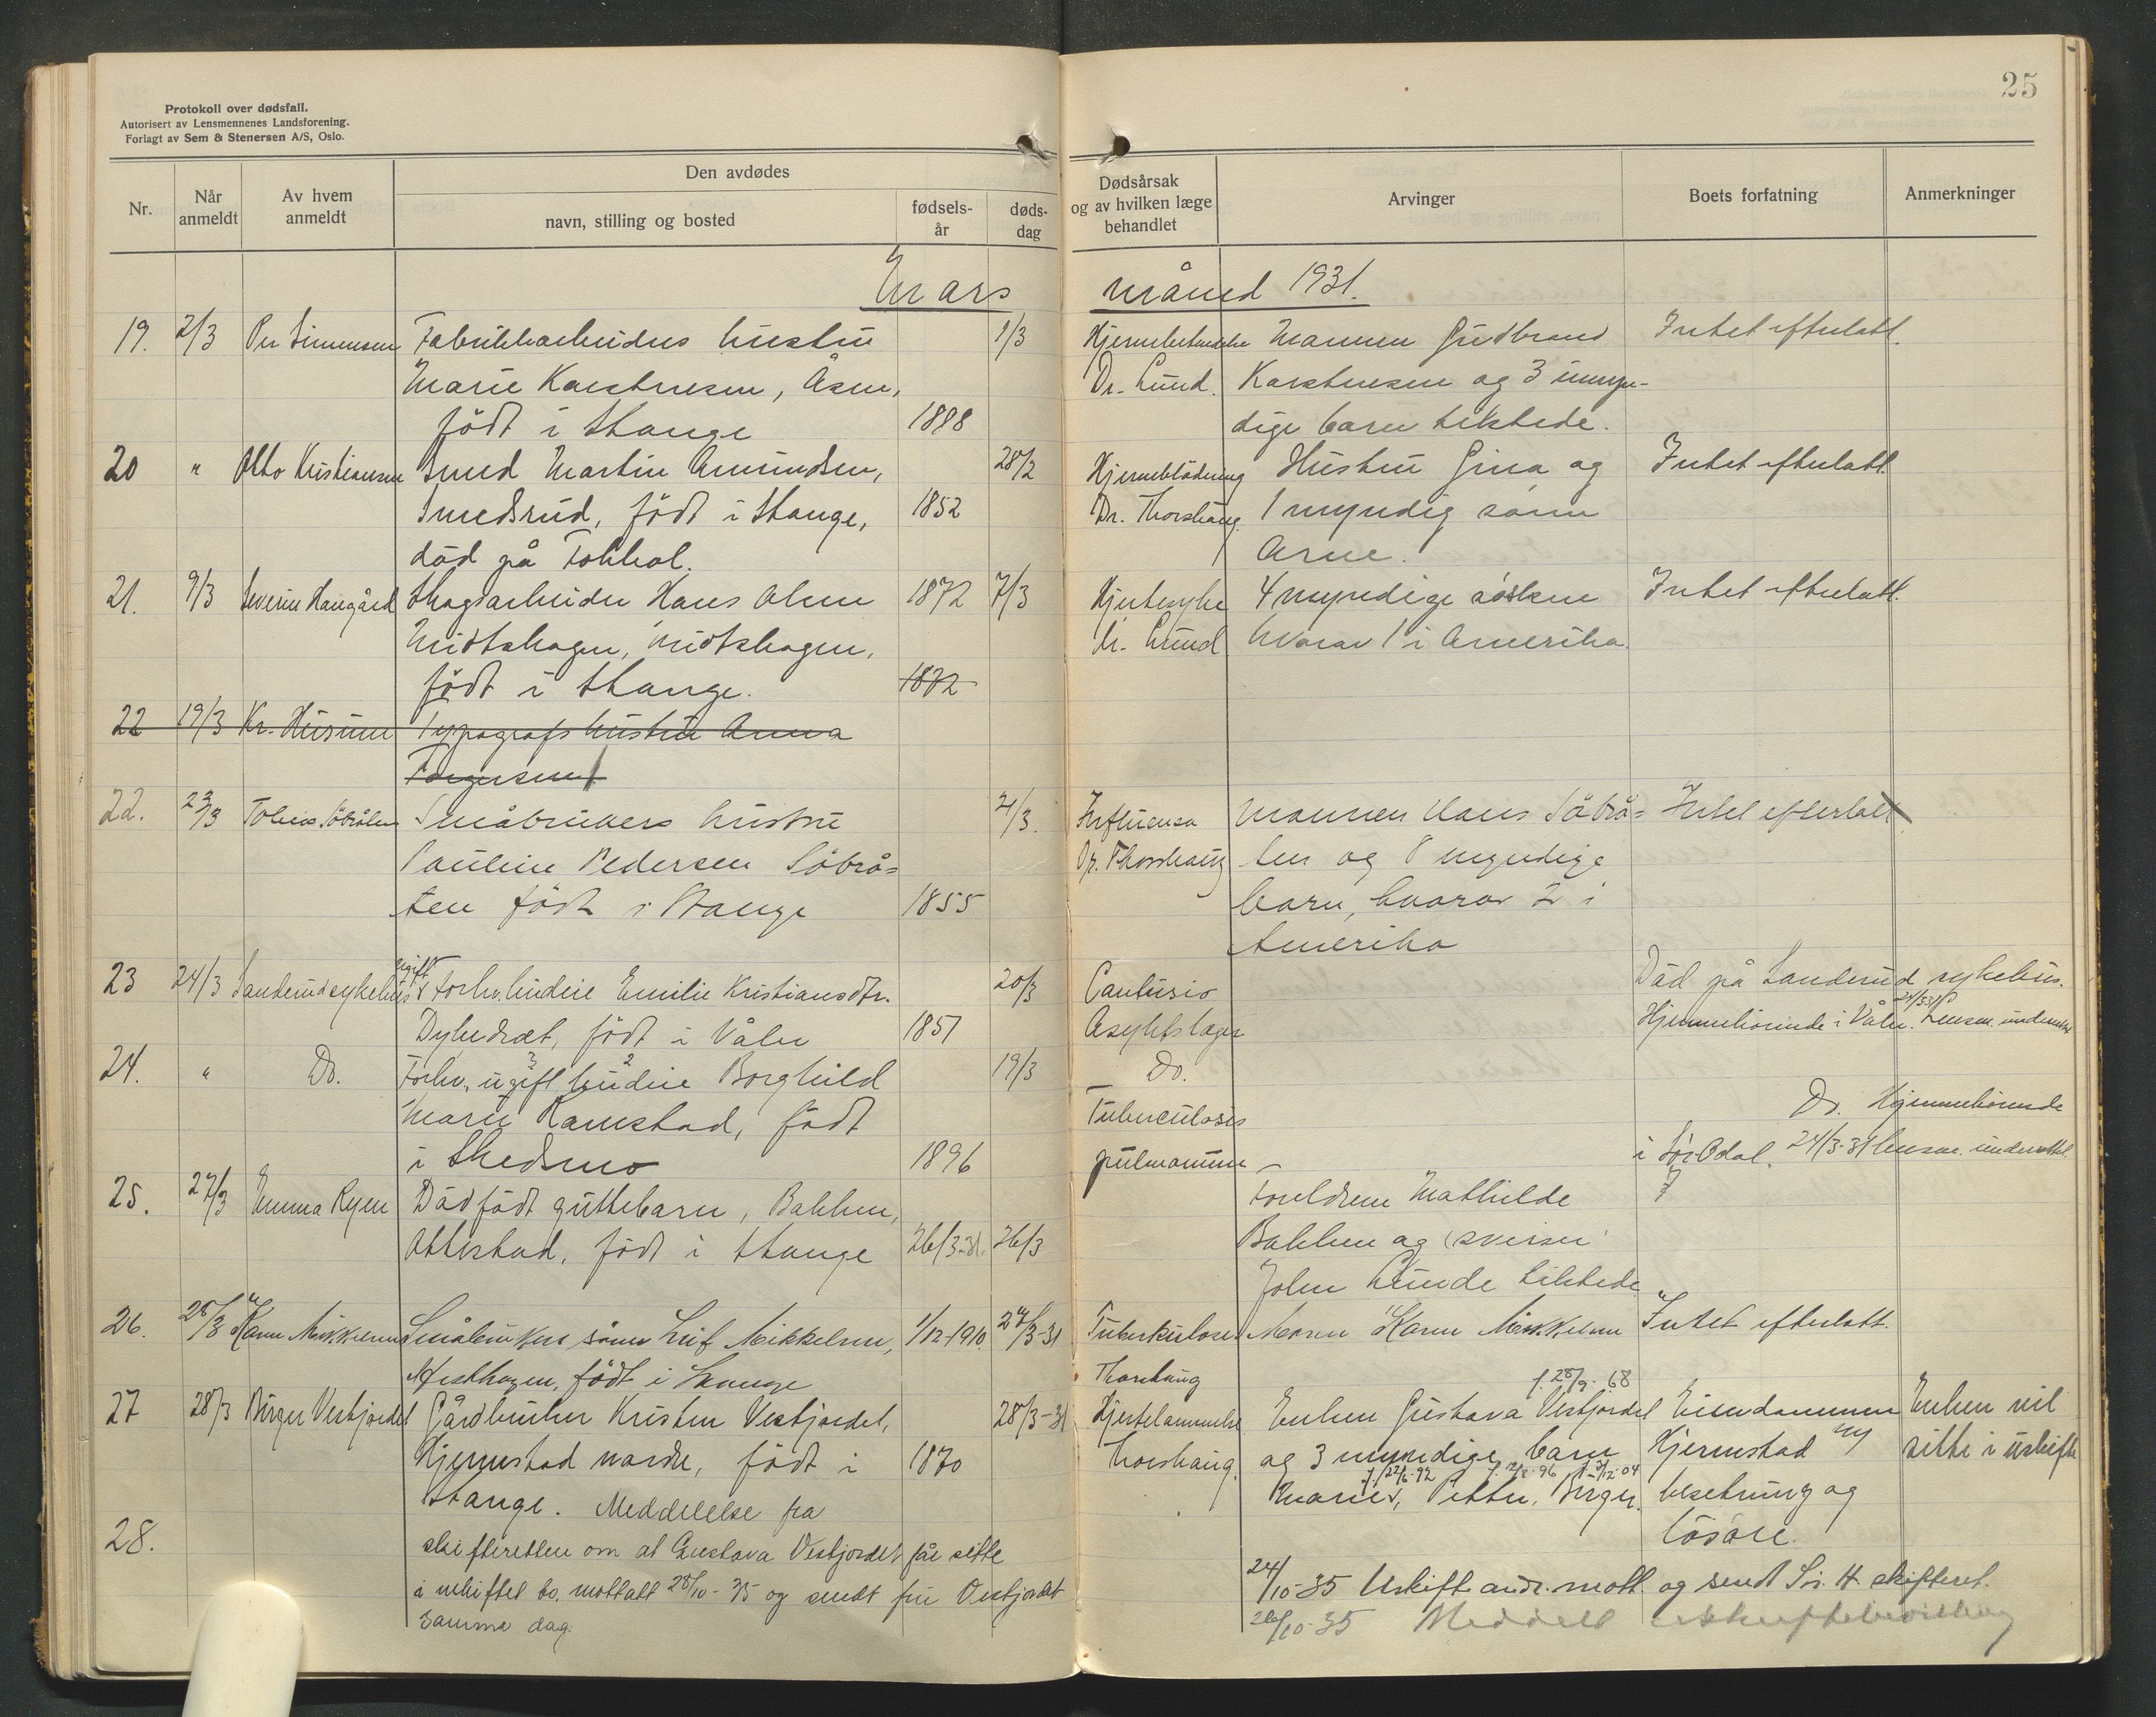 Protokoll over dødsfall.
Autorisert av Lensmennenes Landsforening.
Forlagt av Sem & Stenersen A/S, Oslo.
25
Nr.
Når anmeldt
Av hvem anmeldt
Den avdødes
navn, stilling og bosted
fødsels-år
døds-dag
Dødsårsak og av hvilken læge behandlet
Arvinger
Boets forfatning
Anmerkninger
Mars måned 1931.
19. 2/3 Per Simensen Fabrikkarbeiders hustru 1/3 Mannen Gudbrand Intet efterlatt.
Marie Karstensen, Åsen, Dr. Lund. Karstensen og 3 umyn-
född i Stange 1888 dige barn tilstede.
20 " Otto Kristiansen Smed Martin Amundsen, 28/2 Hjerneblödning Hustru Gina og Intet efterlatt.
Smedsrud, född i Stange, 1852 Dr. Thorshaug. 1 myndig sönn
död på Tokkol. Arne.
21. 9/3 Severin Haugård Skogsarbeider Hans Olsen 1872 7/3 Hjertesyke 4 myndige söskene Intet efterlatt.
Midtskogen, Midtskogen, Dr. Lund hvorav 1 i Amerika.
född i Stange. 1872
22 19/3 Kr. Husum Typografs hustru Anna
Torgersen
22. 23/3 Tobias Söbråten Småbrukers hustru 21/3. Influensa Mannen Hans Söbrå= Intet efterlatt
Pauline Pedersen Söbrå= Dr. Thorshaug ten og 8 myndige
ten född i Stange 1855 barn, hvorav 2 i
Amerika
23 24/3 Sanderud sykehus ugift Forhv. budeie Emilie Kristiansdtr. 20/3 Död på Sanderud sykehus.
född i Våler 1851 Asyllæger Hjemmehörende i Våler. 24/3 31 Lensm. underrettet
24. " Do. Forhv. ugift budeie Borghild 19/3 Do.
Marie Ramstad, född Tuberculosis Do. Hjemmehörende
i Skedsmo 1896 pulmonum i Sör-Odal. 24/3-31 lensm. underrettet.
25. 27/3 Emma Ryen Dödfödt guttebarn, Bakken, Foreldrene Mathilde ?
Ottestad, född i Stange 26/3-31. 26/3 Bakken og sveiser
John Lunde tilstede
26. 28/3 Karen Mikkelsen Småbrukers sönn Leif Mikkelsen, 1/12-1910. 27/3-31 Tuberkulose Moren Karen Mikkelsen Intet efterlatt.
född i Stange Thorshaug
27 28/3 Birger Vestfjordet Gårdbruker Kristen Vestfjordet, 28/3-31 Hjertelammelse Enken Gustava Vestfjordet f. 28/9-68 Eiendommen Enken vil
Hjermstad nordre, född i 1870 Thorshaug. og 3 myndige barn Hjermstad m/ sitte i uskifte
Stange. Meddelelse fra Marie f. 22/6-92, Petter f. 12/8-96, Birger f. 3/12-04. besetning og
lösöre.
28. skifteretten om at Gustava Vestfjordet får sitte
i uskiftet bo, mottatt 28/10-35 og sendt fru Vestfjordet
samme dag.
24/10-35 Uskifte andr. mott. og sendt Sör H. skifteret.
26/10-35 Meddelt uskiftebevilling